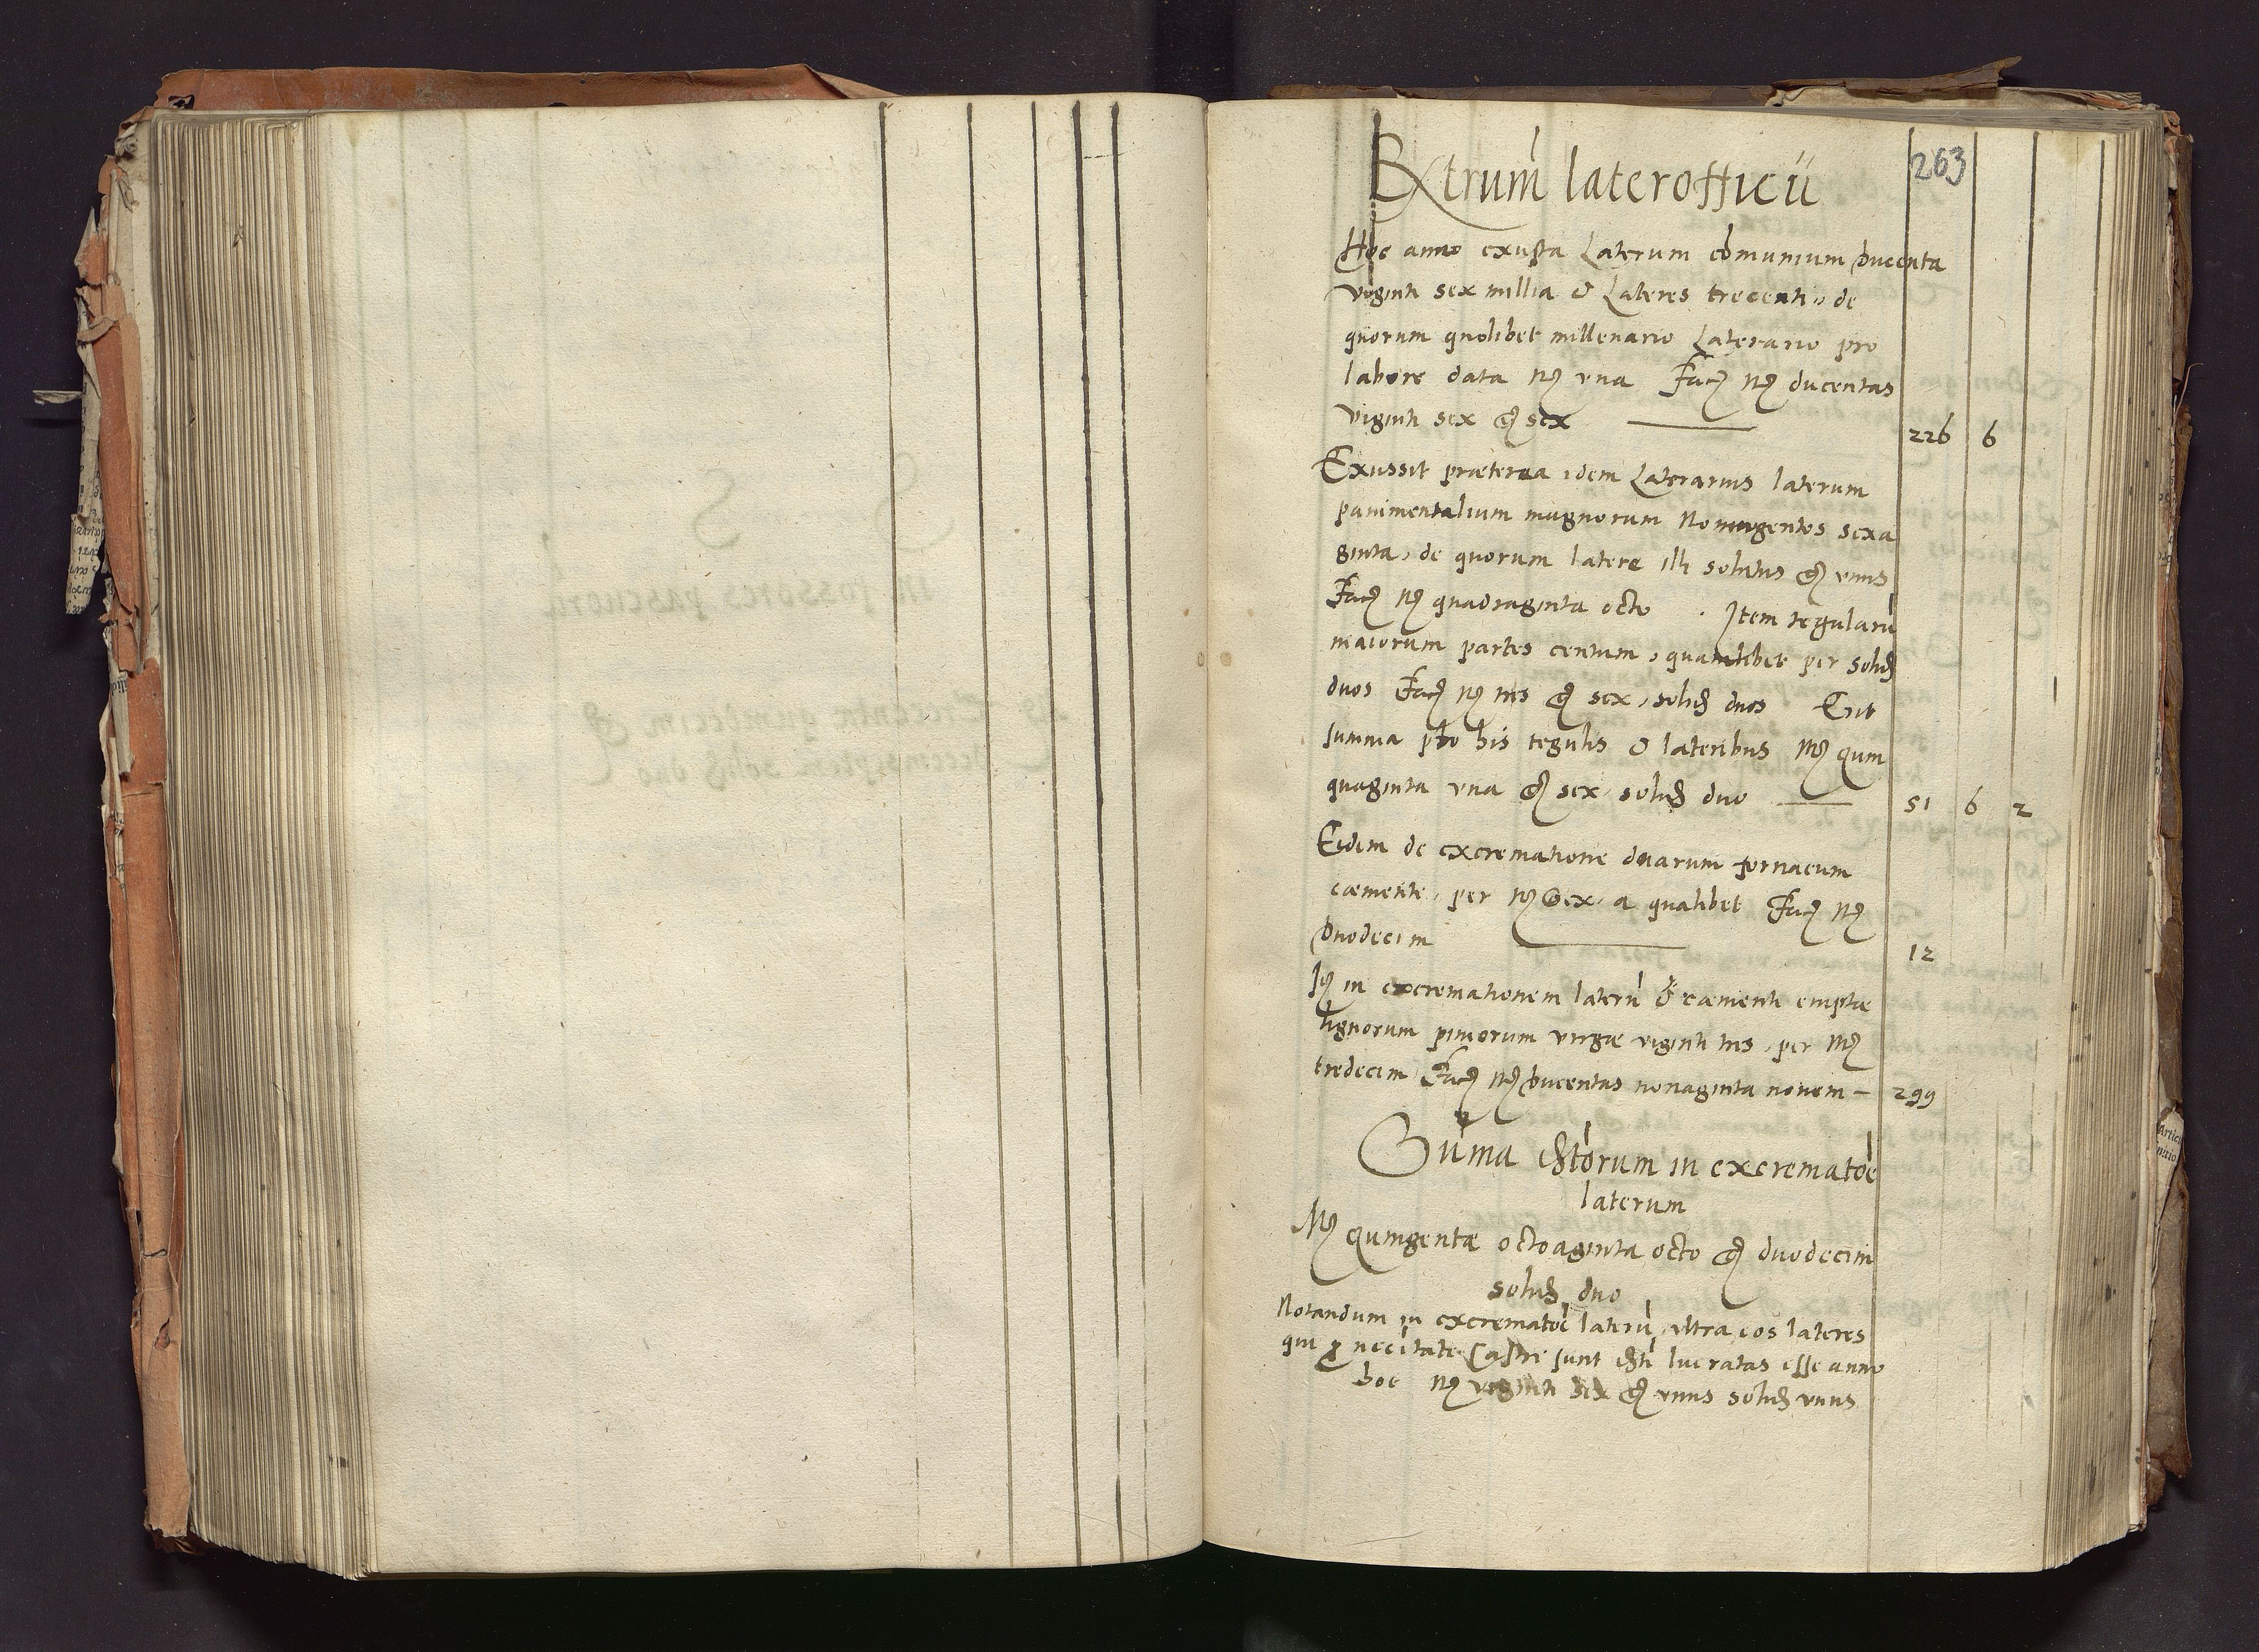 263
Extrum laterofficii
Hoc anno exusta Laterum communium ducenta
viginti sex millia & Lateres trecenti, de
quorum quolibet millenario Laterario pro
labore data mr̃ vna Faciũ mr̃ ducentas
viginti sex gr̃ sex 226 6
Exussit præterea idem Laterarius laterum
pauimentalium magnorum Nonningentos sexa
ginta, de quorum latere illi solutus gr̃ vnus
Faciũ mr̃ quadraginta octo . Item tegularũ
maiorum partes centum, quamlibet per solid
duos Faciũ mr̃ tres gr̃ sex, solid duos Erit
summa pro his tegulis & lateribus mr̃ quin
quaginta vna gr̃ sex, solid duo 51 6 2
Eidem de excrematione duarum fornacum
cæmenti, per mr̃ Sex, a qualibet Faciũ mr̃
duodecim 12
It in excrematione laterũ & cæmenti emptæ
lignorum piniorum virgæ viginti tres, per mr̃
tredecim Faciũ mr̃ ducentas nonaginta novem 299
Sũma extorum in excrematõe
laterum
Mr̃ Quingentæ octoaginta octo gr̃ duodecim
solid duo
Notandum in excrematõe laterũ, vltra eos lateres
qui p necitate Castri sunt exti lucratas esse anno
hoc mr̃ viginti sex gr̃ vnus solid vnus